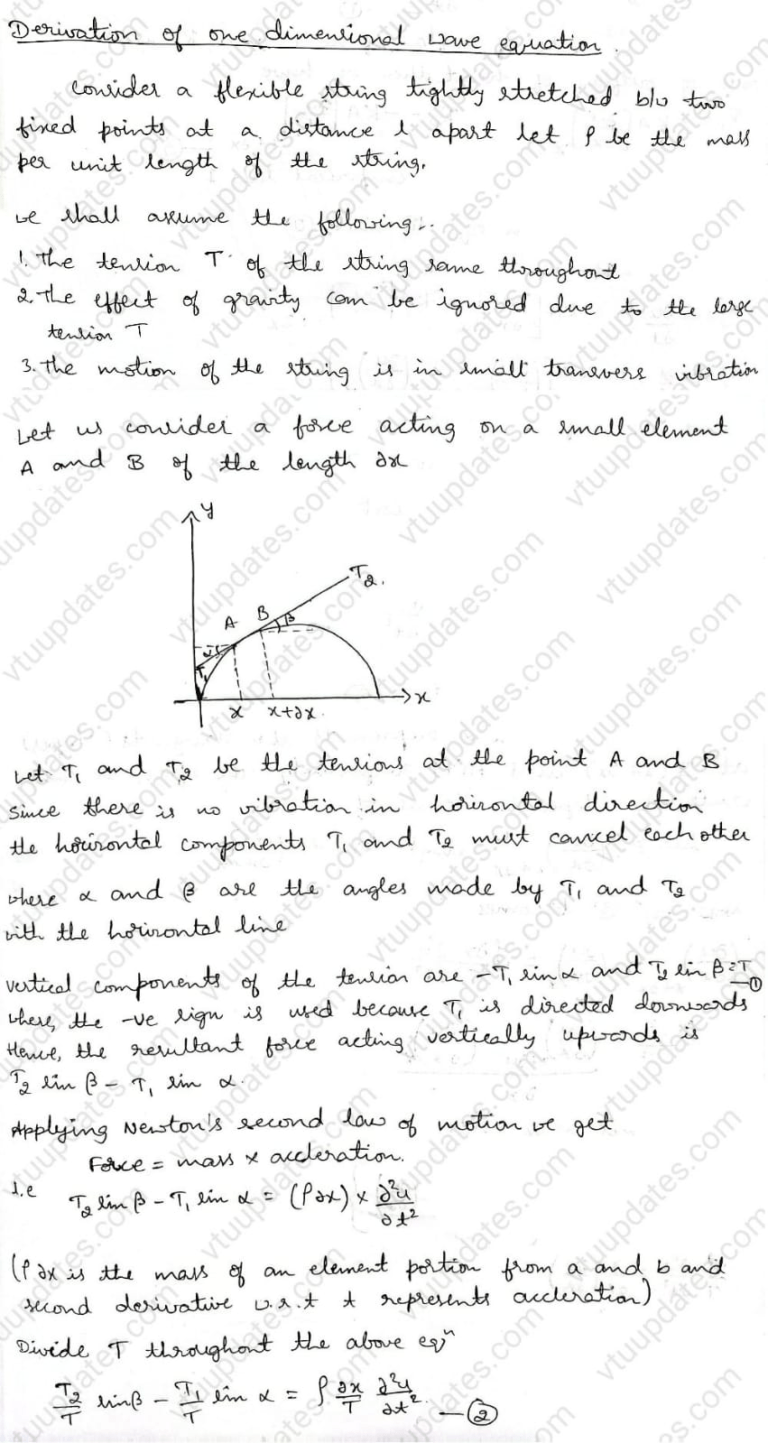 Derivation of one dimensional wave equation.
Consider a flexible string tightly stretched b/w two
fixed points at a distance l apart let ρ be the mass
per unit length of the string.
we shall assume the following:.
1. The tension T of the string same throughout
2. The effect of gravity can be ignored due to the large
tension T
3. The motion of the string is in small transvers vibration
Let us consider a force acting on a small element
A and B of the length ∂x
y
T₂.
A B β
T₁
x x+∂x.
x
Let T₁ and T₂ be the tensions at the point A and B
Since there is no vibration in horizontal direction
the horizontal components T₁ and T₂ must cancel each other
where α and β are the angles made by T₁ and T₂
with the horizontal line
vertical components of the tension are -T₁ sin α and T₂ sin β = T —①
where, the -ve sign is used because T₁ is directed downwards
Hence, the resultant force acting vertically upwards is
T₂ sin β - T₁ sin α.
Applying Newton's second law of motion we get
Force = mass x accleration.
i.e T₂ sin β - T₁ sin α = (ρ∂x) x ∂²u/∂t²
(ρ∂x is the mass of an element portion from a and b and
second derivative w.r.t t represents accleration)
Divide T throughout the above eqⁿ
T₂/T sin β - T₁/T sin α = ρ ∂x/T ∂²u/∂t². —②
vtuupdates.com